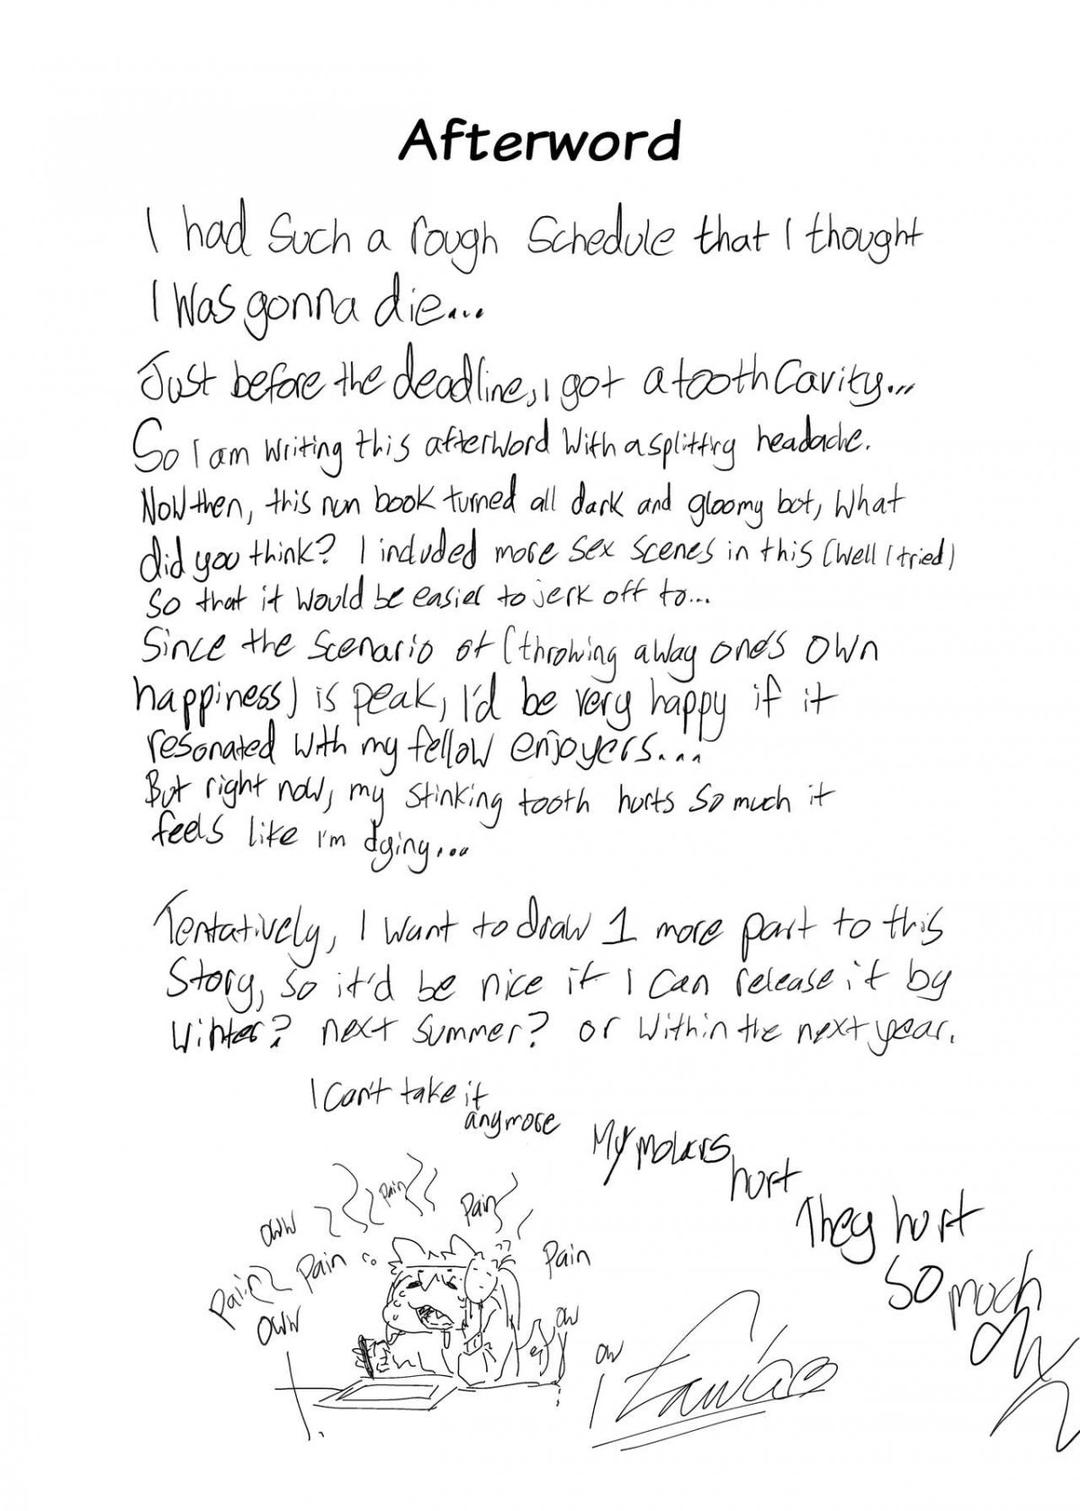 Afterword
I had such a rough schedule that I thought
I was gonna die...
Just before the deadline, I got a tooth cavity...
So I am writing this afterword with a splitting headache.
Now then, this nun book turned all dark and gloomy but, what
did you think? I included more sex scenes in this (well I tried)
so that it would be easier to jerk off to...
Since the scenario of (throwing away one's own
happiness) is peak, I'd be very happy if it
resonated with my fellow enjoyers....
But right now, my stinking tooth hurts so much it
feels like I'm dying...
Tentatively, I want to draw 1 more part to this
story, so it'd be nice if I can release it by
winter? next summer? or within the next year.
I can't take it
anymore
My molars
hurt
They hurt
so much
ow
Pain
Pain
oww
Pain
Pain
Pain
oww
ow
ow